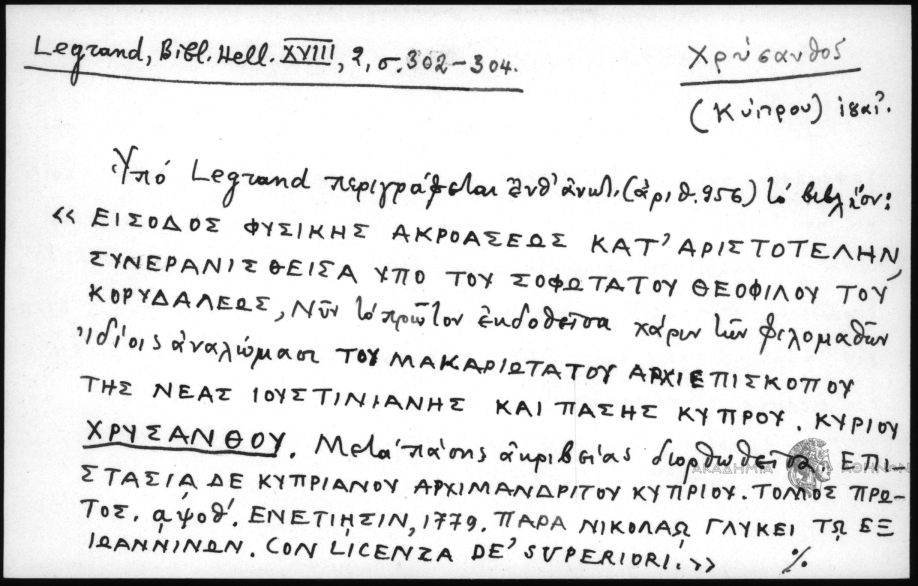 Legrand, Bibl. Hell. XVIII, 2, σ. 302-304.
Χρύσανθος
(Κύπρου) ιβαʹ.
Ὑπό Legrand περιγράφεται ἐνθ' ἀνωτ. (ἀριθ. 956) τὸ βιβλίον:
« ΕΙΣΟΔΟΣ ΦΥΣΙΚΗΣ ΑΚΡΟΑΣΕΩΣ ΚΑΤ' ΑΡΙΣΤΟΤΕΛΗΝ,
ΣΥΝΕΡΑΝΙΣΘΕΙΣΑ ΥΠΟ ΤΟΥ ΣΟΦΩΤΑΤΟΥ ΘΕΟΦΙΛΟΥ ΤΟΥ
ΚΟΡΥΔΑΛΕΩΣ, Νῦν τὸ πρῶτον ἐκδοθεῖσα χάριν τῶν φιλομαθῶν
Ἰδίοις ἀναλώμασι ΤΟΥ ΜΑΚΑΡΙΩΤΑΤΟΥ ΑΡΧΙΕΠΙΣΚΟΠΟΥ
ΤΗΣ ΝΕΑΣ ΙΟΥΣΤΙΝΙΑΝΗΣ ΚΑΙ ΠΑΣΗΣ ΚΥΠΡΟΥ. ΚΥΡΙΟΥ
ΧΡΥΣΑΝΘΟΥ. Μετὰ πάσης ἀκριβείας διορθωθεῖσα. ΕΠΙ-
ΣΤΑΣΙΑ ΔΕ ΚΥΠΡΙΑΝΟΥ ΑΡΧΙΜΑΝΔΡΙΤΟΥ ΚΥΠΡΙΟΥ. ΤΟΜΟΣ ΠΡΩ-
ΤΟΣ. αψοθʹ. ΕΝΕΤΙΗΣΙΝ, 1779. ΠΑΡΑ ΝΙΚΟΛΑῼ ΓΛΥΚΕΙ Τῼ ΕΞ
ΙΩΑΝΝΙΝΩΝ. CON LICENZA DE' SUPERIORI. »
%
ΑΚΑΔΗΜΙΑ ΑΘΗΝΩΝ